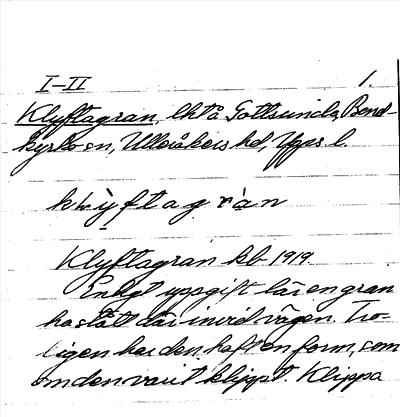 I-II 1.
Klyftagran, lht å Gottsunda, Bond-
kyrko sn, Ulleråkers hd, Upps. l.
Klyftagran kb 1919.
Enligt uppgift lär en gran
ha stått där invid vägen. Tro-
ligen har den haft en form, som
om den varit klippt. Klippa